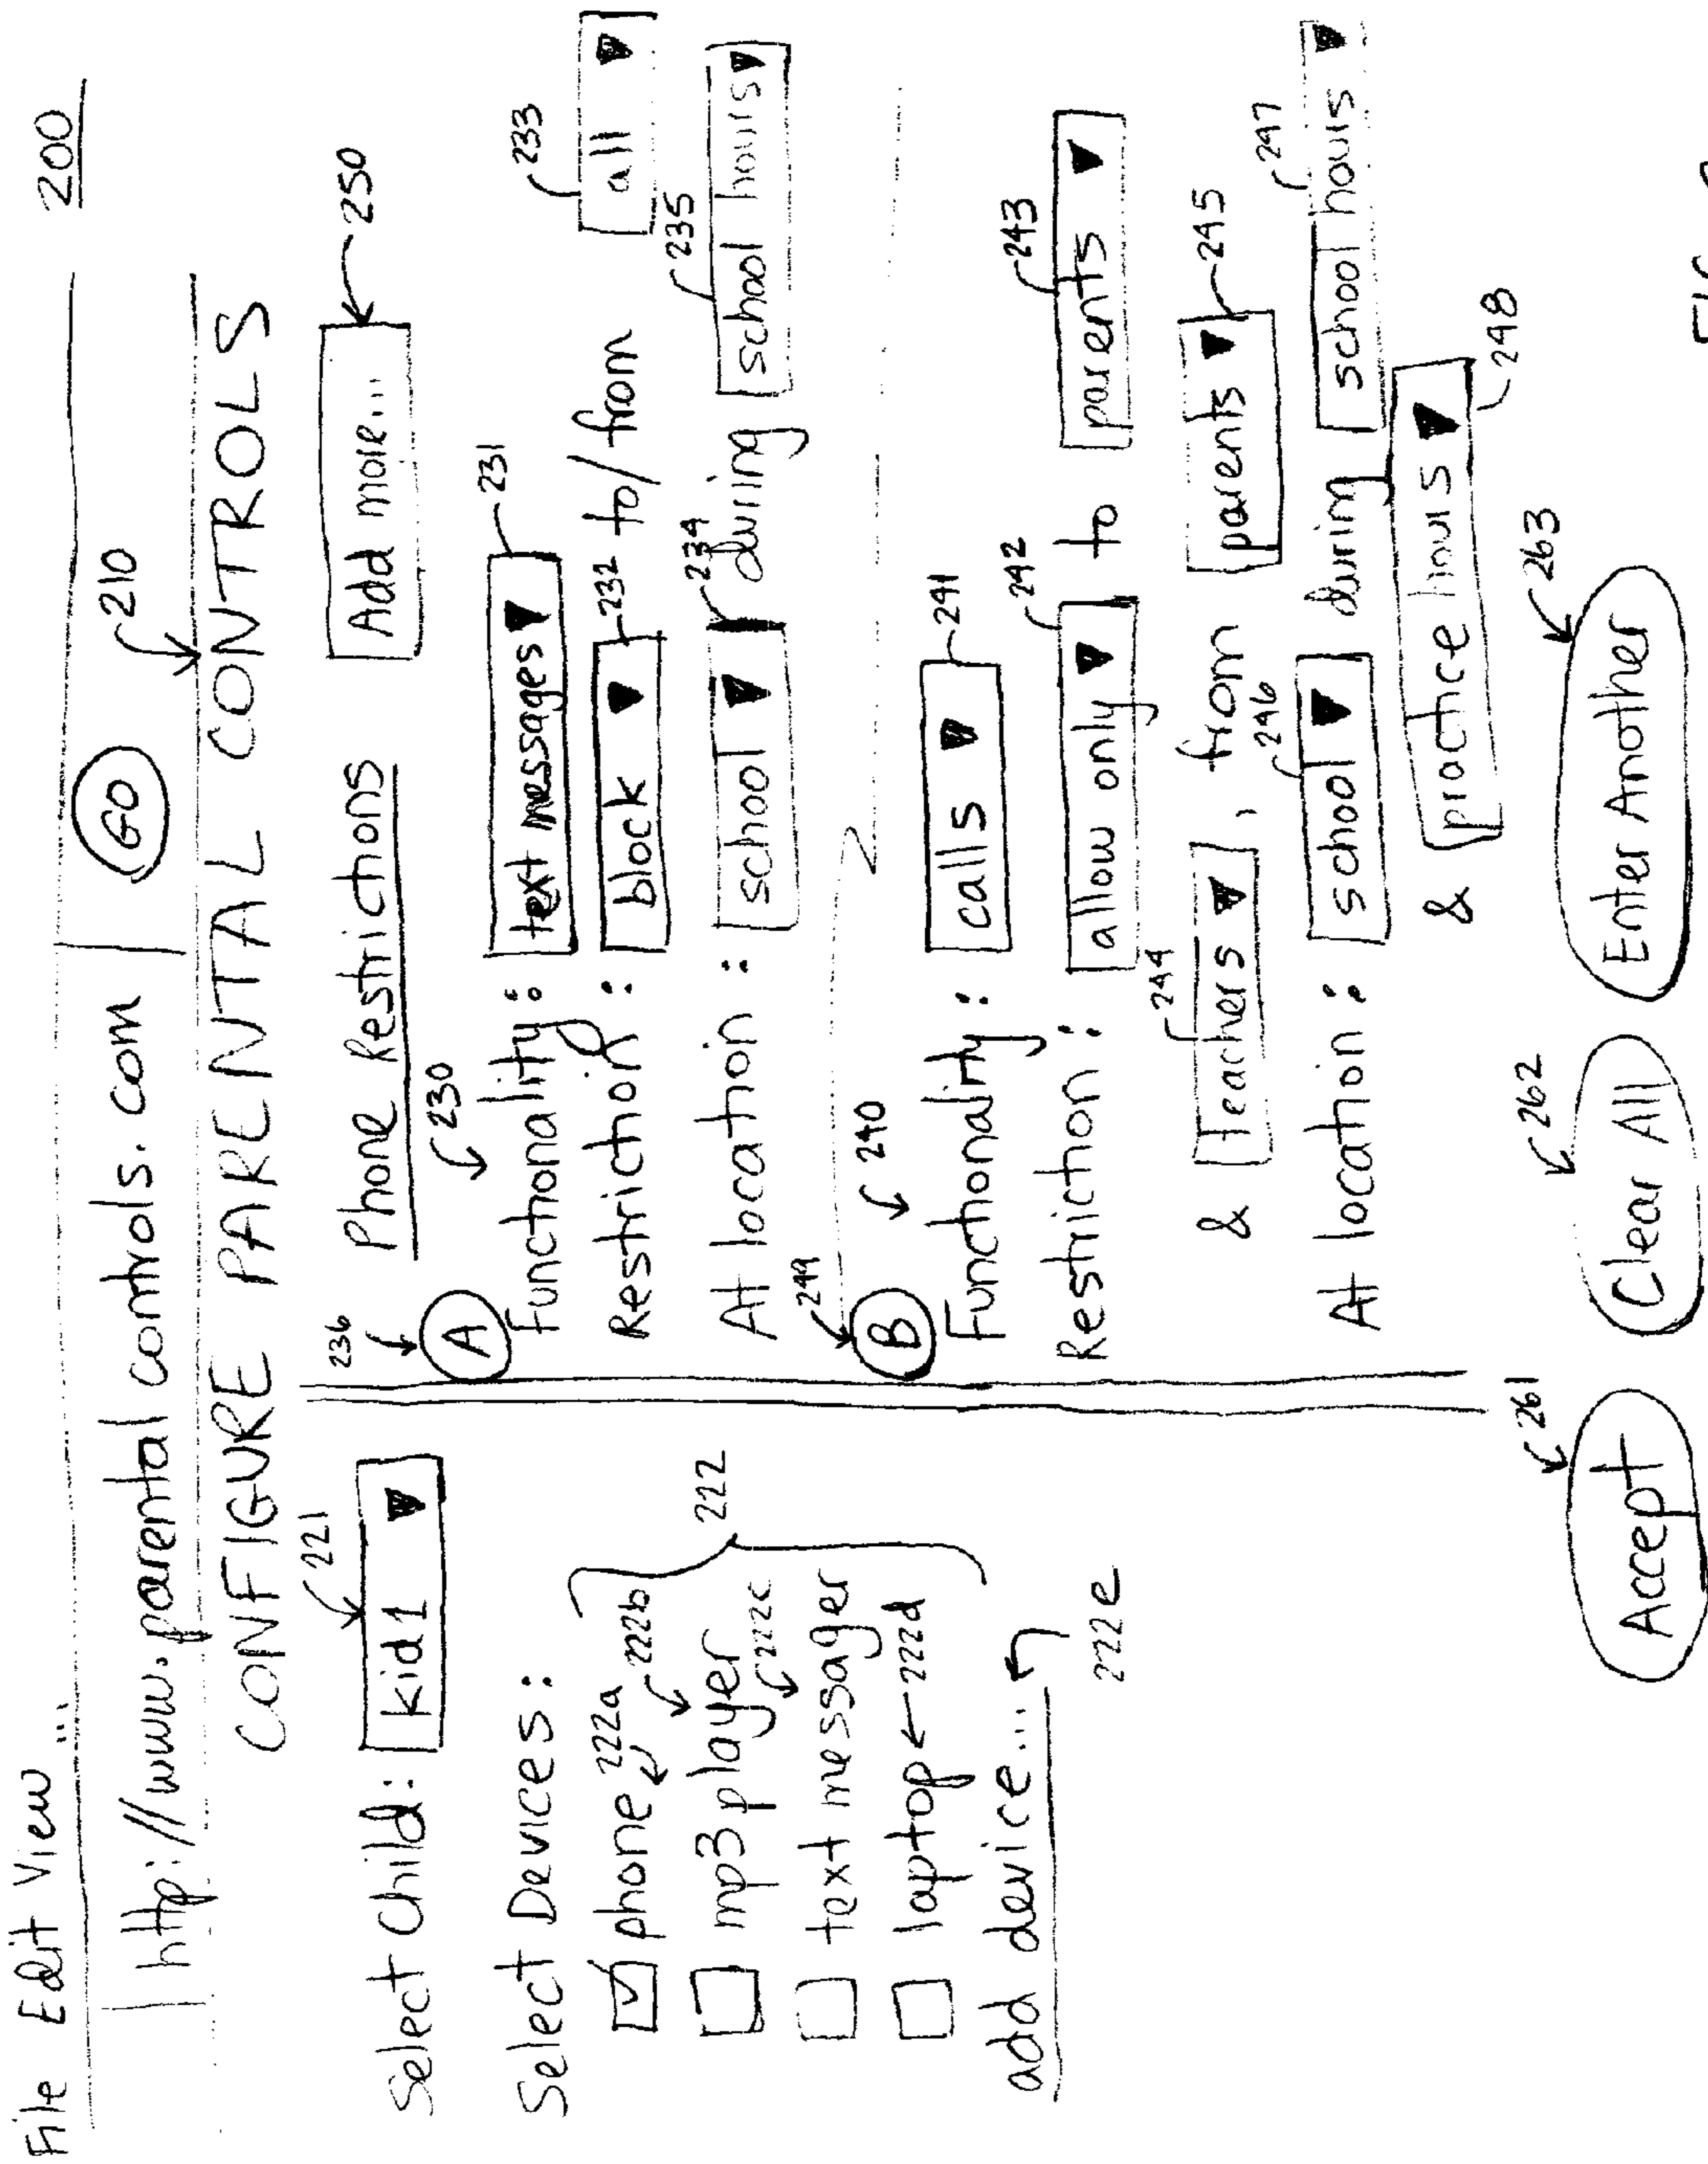 File Edit View ...
200
http://www.parentalcontrols.com
GO
210
CONFIGURE PARENTAL CONTROLS
221
Select Child: kid1
Select Devices:
phone 222a
mp3 player 222b
text messager 222c
laptop 222d
222
add device...
222e
Phone Restrictions
Add more...
250
236
A
230
Functionality: text messages
231
Restriction: block
232
to/from all
233
At location: school
234
during school hours
235
249
B
240
Functionality: calls
241
Restriction: allow only
242
to parents
243
& teachers
244
, from parents
245
At location: school
246
during school hours
247
& practice hours
248
Accept
261
Clear All
262
Enter Another
263